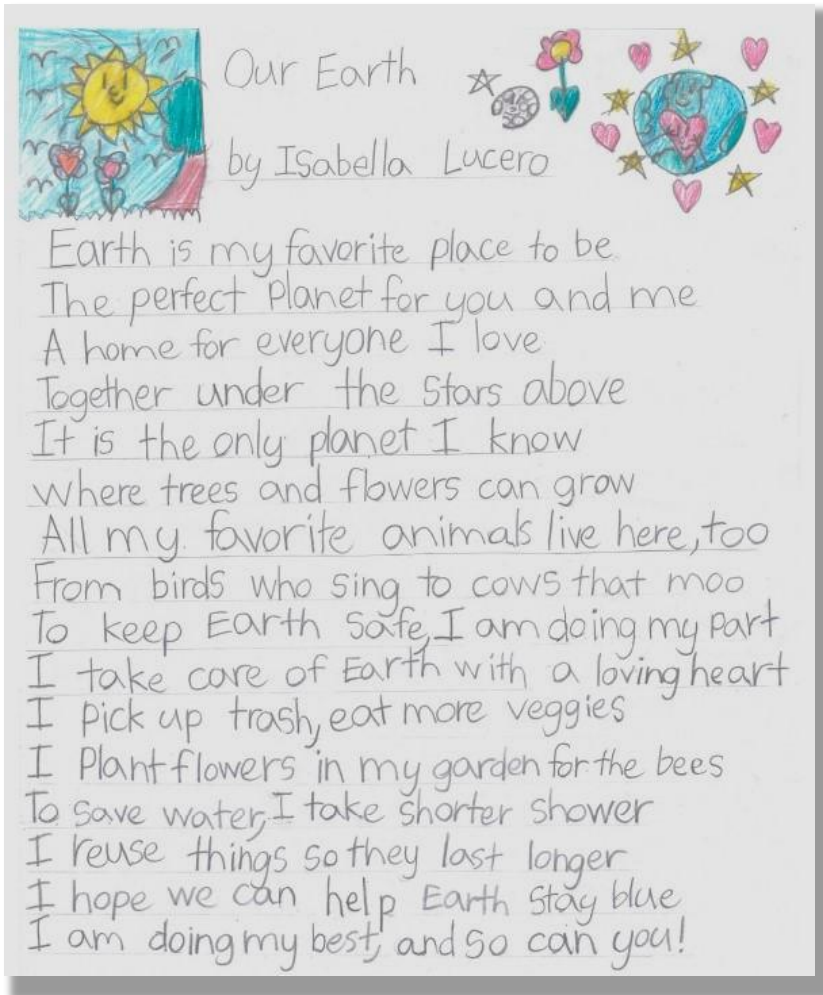 Our Earth
by Isabella Lucero
Earth is my favorite place to be
The perfect Planet for you and me
A home for everyone I love
Together under the Stars above
It is the only planet I know
where trees and flowers can grow
All my favorite animals live here, too
From birds who sing to cows that moo
To keep Earth Safe, I am doing my part
I take care of Earth with a loving heart
I Pick up trash, eat more veggies
I Plant flowers in my garden for the bees
To save water, I take shorter shower
I reuse things so they last longer
I hope we can help Earth Stay blue
I am doing my best, and So can you!